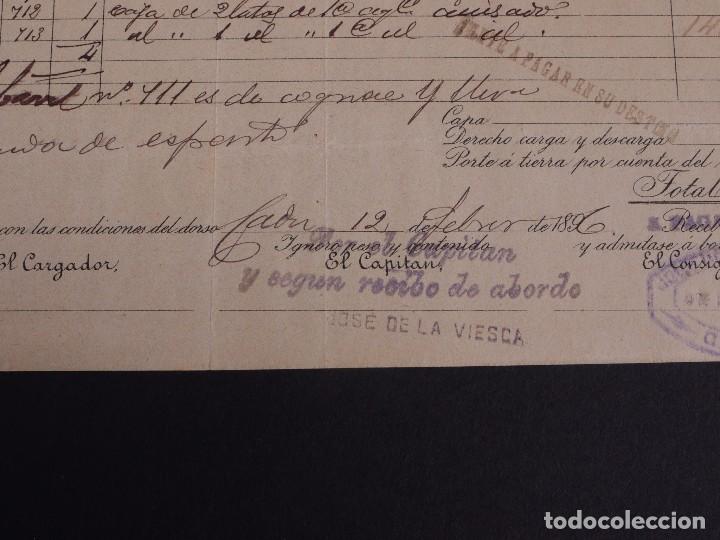 712 1 caja de 2 latas de 1 @ agte anisado.
713 1 al " 1 al " 1 @ al al "
4
FLETE A PAGAR EN SU DESTINO
14
nº. 711 es de cognac y lleva
de esparto.
Capa
Derecho carga y descarga
Porte á tierra por cuenta del
Total
con las condiciones del dorso Cadiz 12 de Febrero de 1896. Recib
Ignoro peso y contenido y admítase á bo
El Cargador, El Capitan, El Consig
Por el Capitan
y segun recibo de abordo
JOSÉ DE LA VIESCA
todocoleccion.net